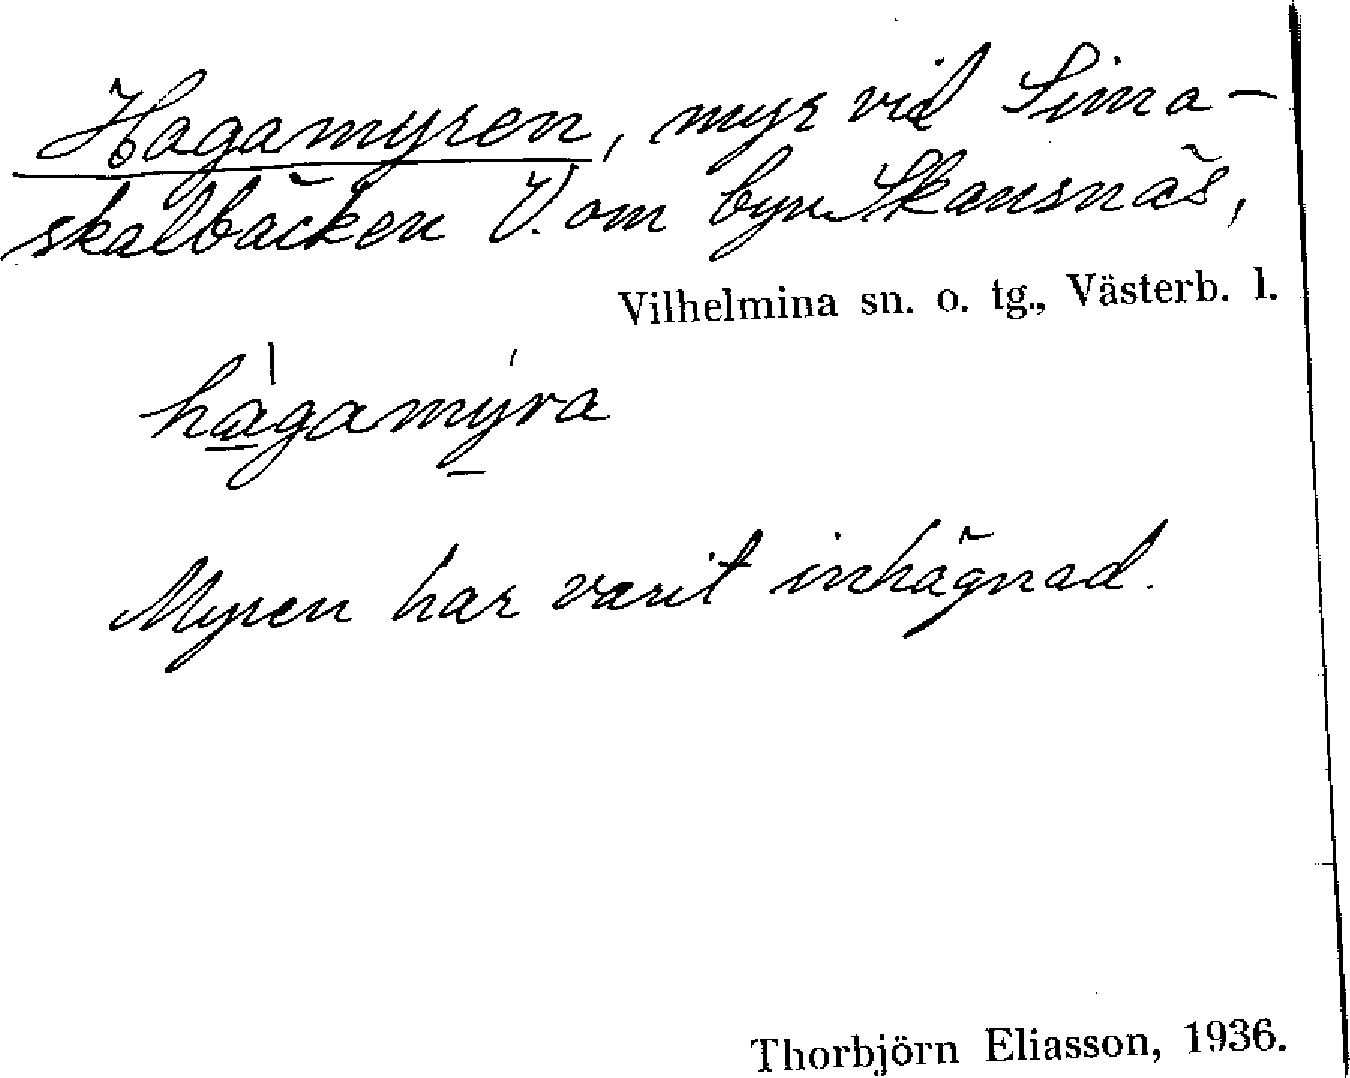 Hagamyren, myr vid Sima-
skalbäcken V. om byn Skansnäs,
Vilhelmina sn. o. tg., Västerb. l.
hagamyra
Myren har varit inhägnad.
Thorbjörn Eliasson, 1936.